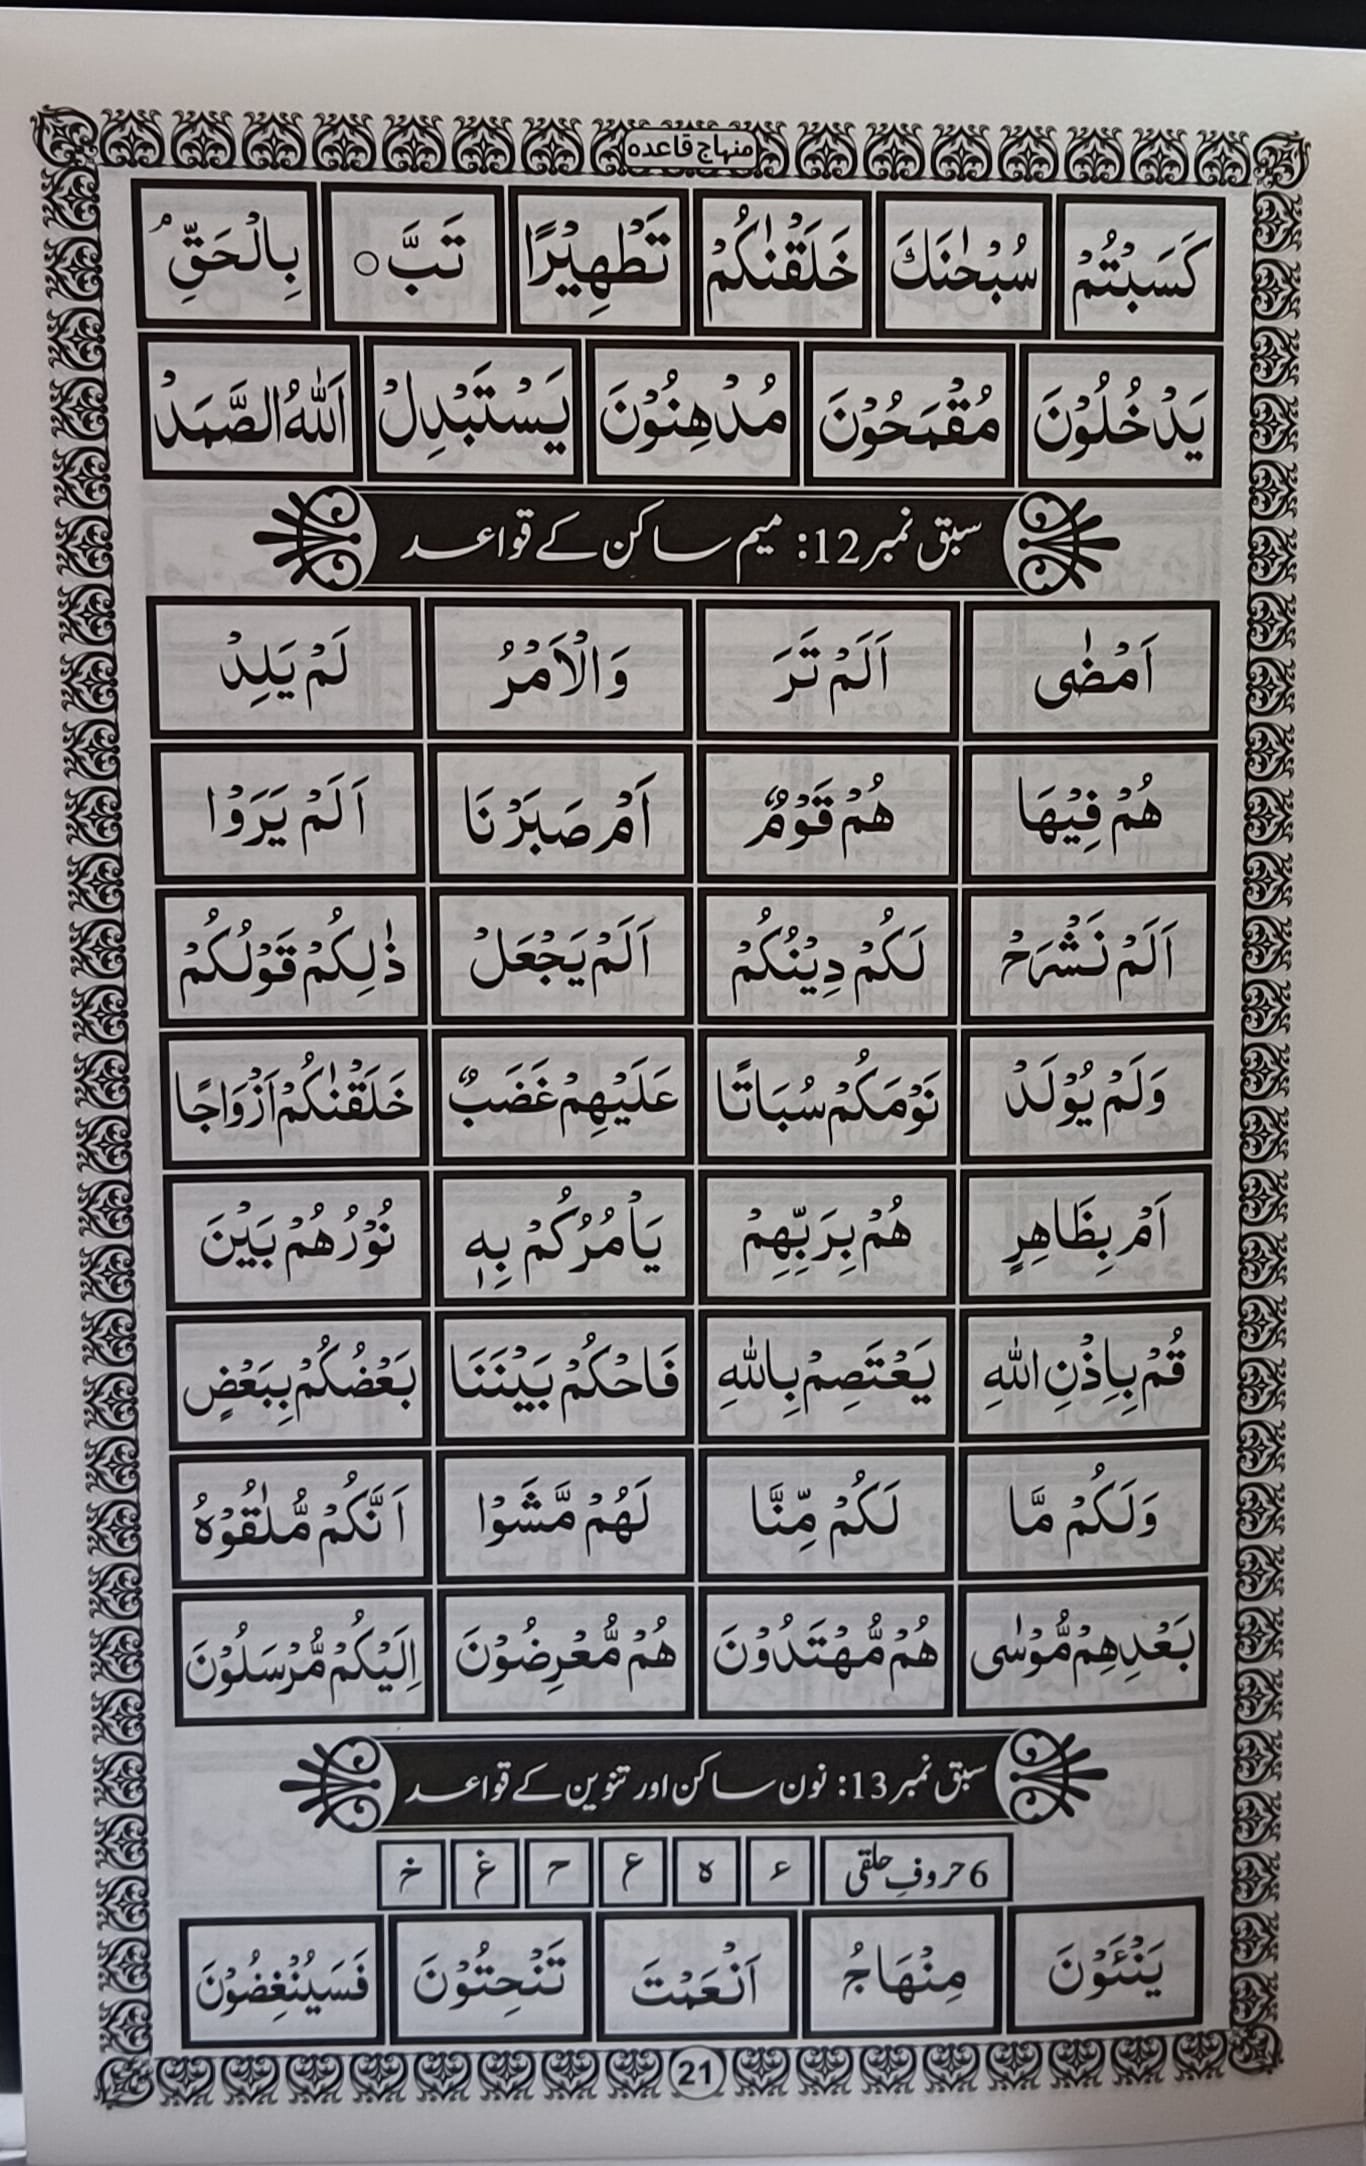 منہاج قاعدہ
كَسَبْتُمْ سُبْحٰنَكَ خَلَقْنٰكُمْ تَطْهِيْرًا تَبَّ ○ بِالْحَقِّ ۙ
يَدْخُلُوْنَ مُقْمَحُوْنَ مُدْهِنُوْنَ يَسْتَبْدِلْ اَللّٰهُ الصَّمَدْ
سبق نمبر 12: میم ساکن کے قواعد
اَمْضٰى اَلَمْ تَرَ وَالْاَمْرُ لَمْ يَلِدْ
هُمْ فِيْهَا هُمْ قَوْمٌ اَمْ صَبَرْنَا اَلَمْ يَرَوْا
اَلَمْ نَشْرَحْ لَكُمْ دِيْنُكُمْ اَلَمْ يَجْعَلْ ذٰلِكُمْ قَوْلُكُمْ
وَلَمْ يُوْلَدْ نَوْمَكُمْ سُبَاتًا عَلَيْهِمْ غَضَبٌ خَلَقْنٰكُمْ اَزْوَاجًا
اَمْ بِظَاهِرٍ هُمْ بِرَبِّهِمْ يَاْمُرُكُمْ بِهٖ نُوْرُهُمْ بَيْنَ
قُمْ بِاِذْنِ اللّٰهِ يَعْتَصِمْ بِاللّٰهِ فَاحْكُمْ بَيْنَنَا بَعْضُكُمْ بِبَعْضٍ
وَلَكُمْ مَّا لَكُمْ مِّنَّا لَهُمْ مَّشَوْا اَنَّكُمْ مُّلٰقُوْهُ
بَعْدِهِمْ مُّوْسٰى هُمْ مُّهْتَدُوْنَ هُمْ مُّعْرِضُوْنَ اِلَيْكُمْ مُّرْسَلُوْنَ
سبق نمبر 13: نون ساکن اور تنوین کے قواعد
6 حروفِ حلقی ء ہ ع ح غ خ
يَنْئَوْنَ مِنْهَاجُ اَنْعَمْتَ تَنْحِتُوْنَ فَسَيُنْغِضُوْنَ
21